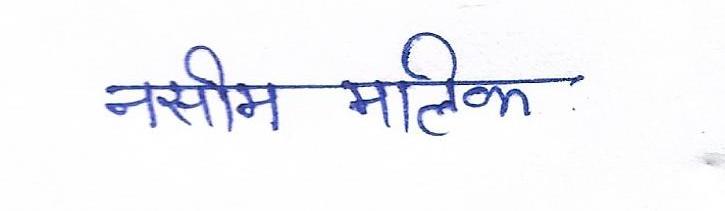 नसीम मालिक